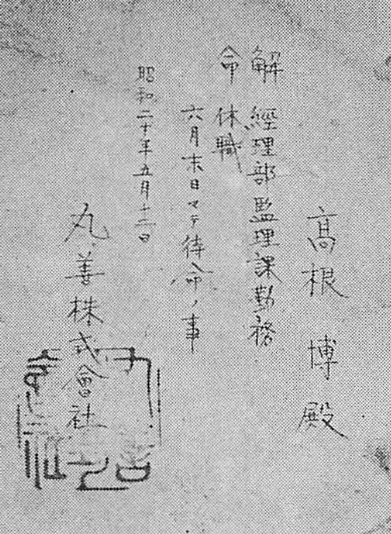 高根博殿
解 經理部監理課勤務
命 休職
六月末日マデ待命ノ事
昭和二十年五月十二日
丸善株式會社